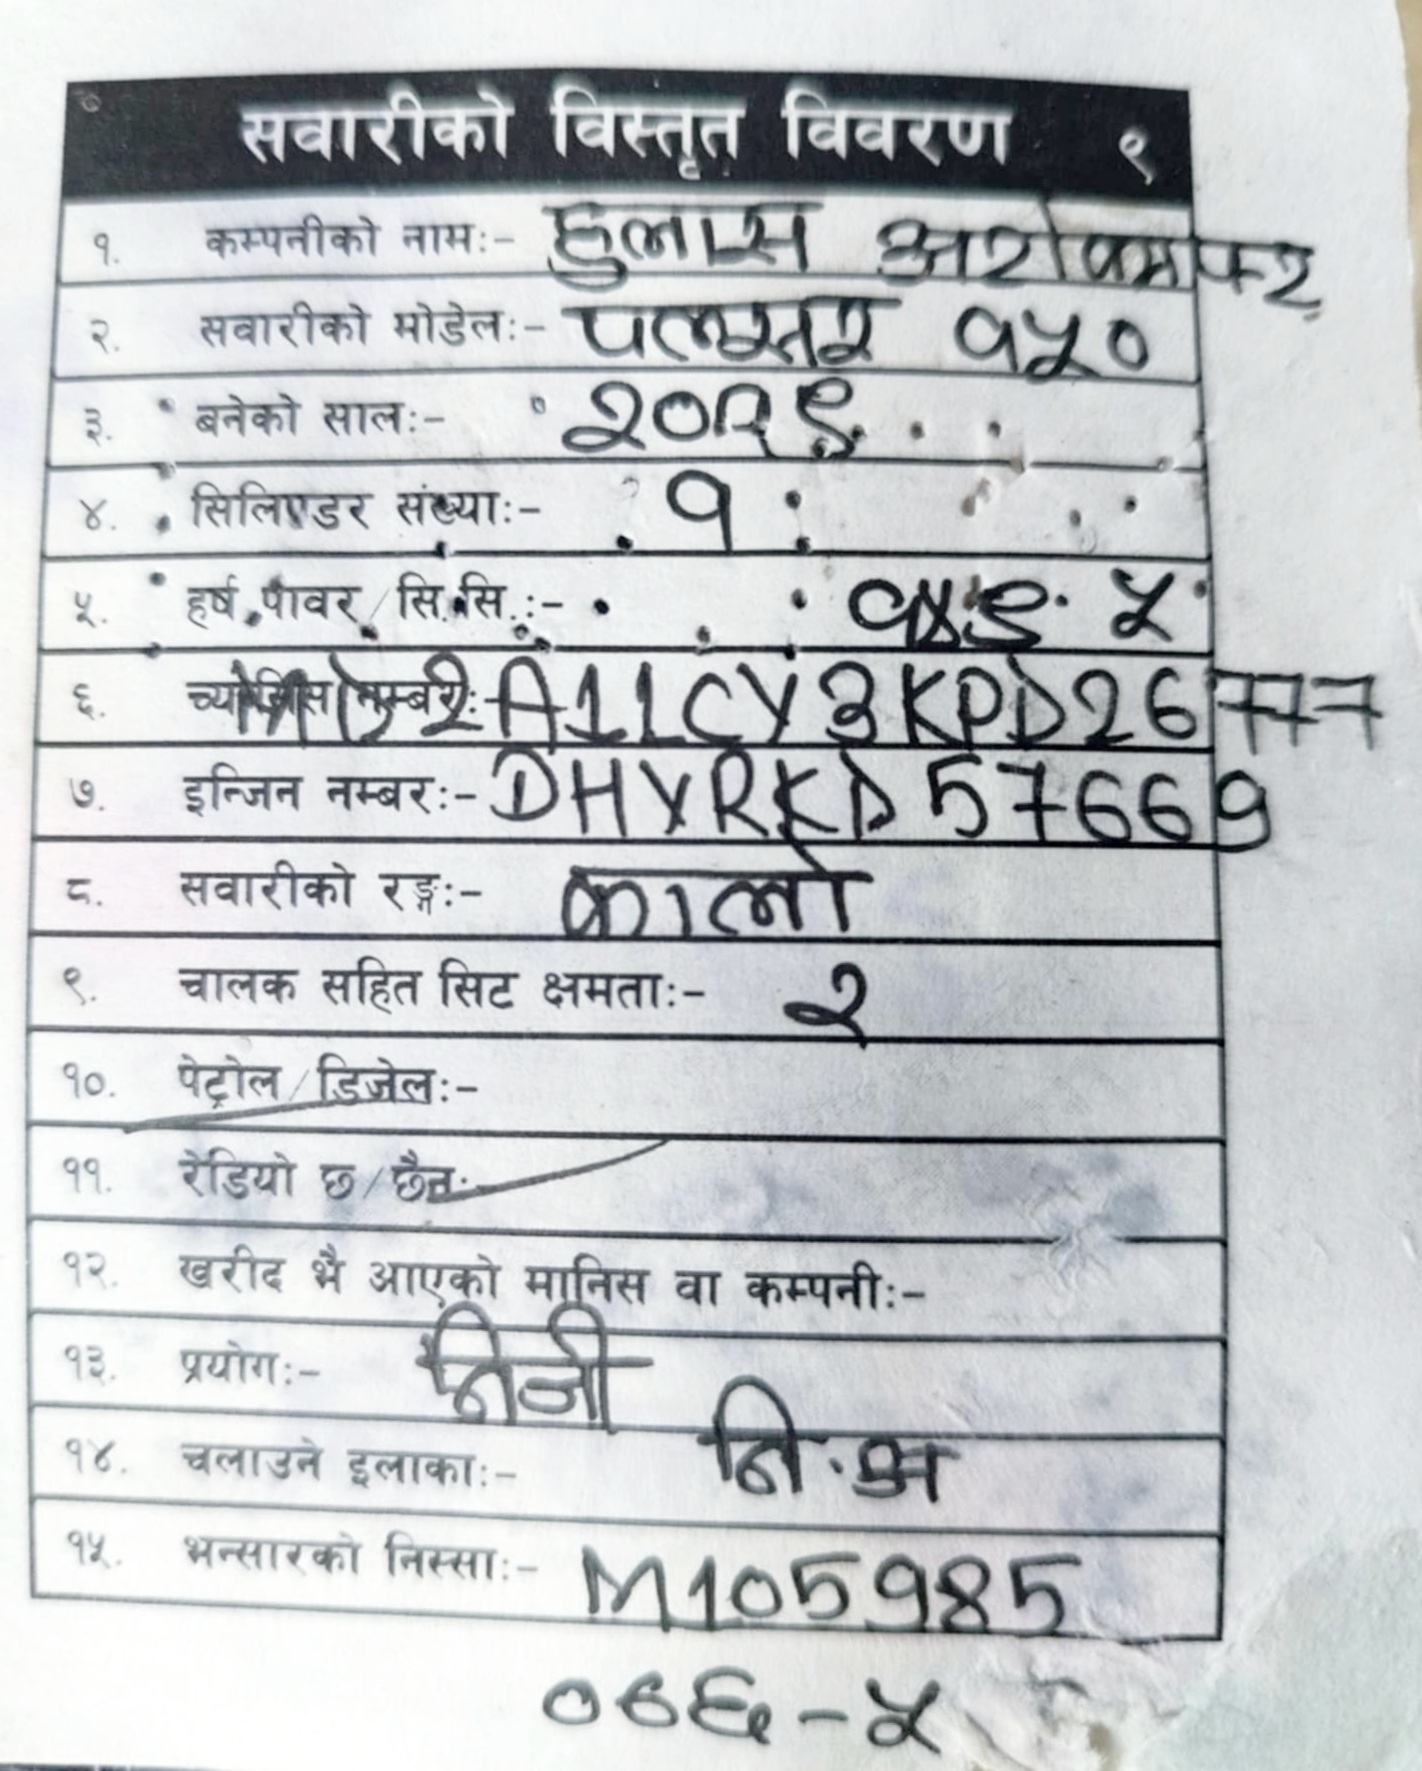 सवारीको विस्तृत विवरण ९
१. कम्पनीको नामः- हुलास अटोक्राफ्ट
२. सवारीको मोडेलः- पल्सर १५०
३. बनेको सालः- २०१९
४. सिलिण्डर संख्याः- १
५. हर्ष पावर/सि.सि.:- १४९.५
६. च्यासिस नम्बरः- MD2A11CY3KPD26777
७. इन्जिन नम्बरः- DHYRKD57669
८. सवारीको रङ्गः- कालो
९. चालक सहित सिट क्षमताः- २
१०. पेट्रोल/डिजेलः-
११. रेडियो छ/छैनः-
१२. खरीद भै आएको मानिस वा कम्पनीः-
१३. प्रयोगः- निजी
१४. चलाउने इलाकाः- नि.अ
१५. भन्सारको निस्साः- M105985
०७६-५